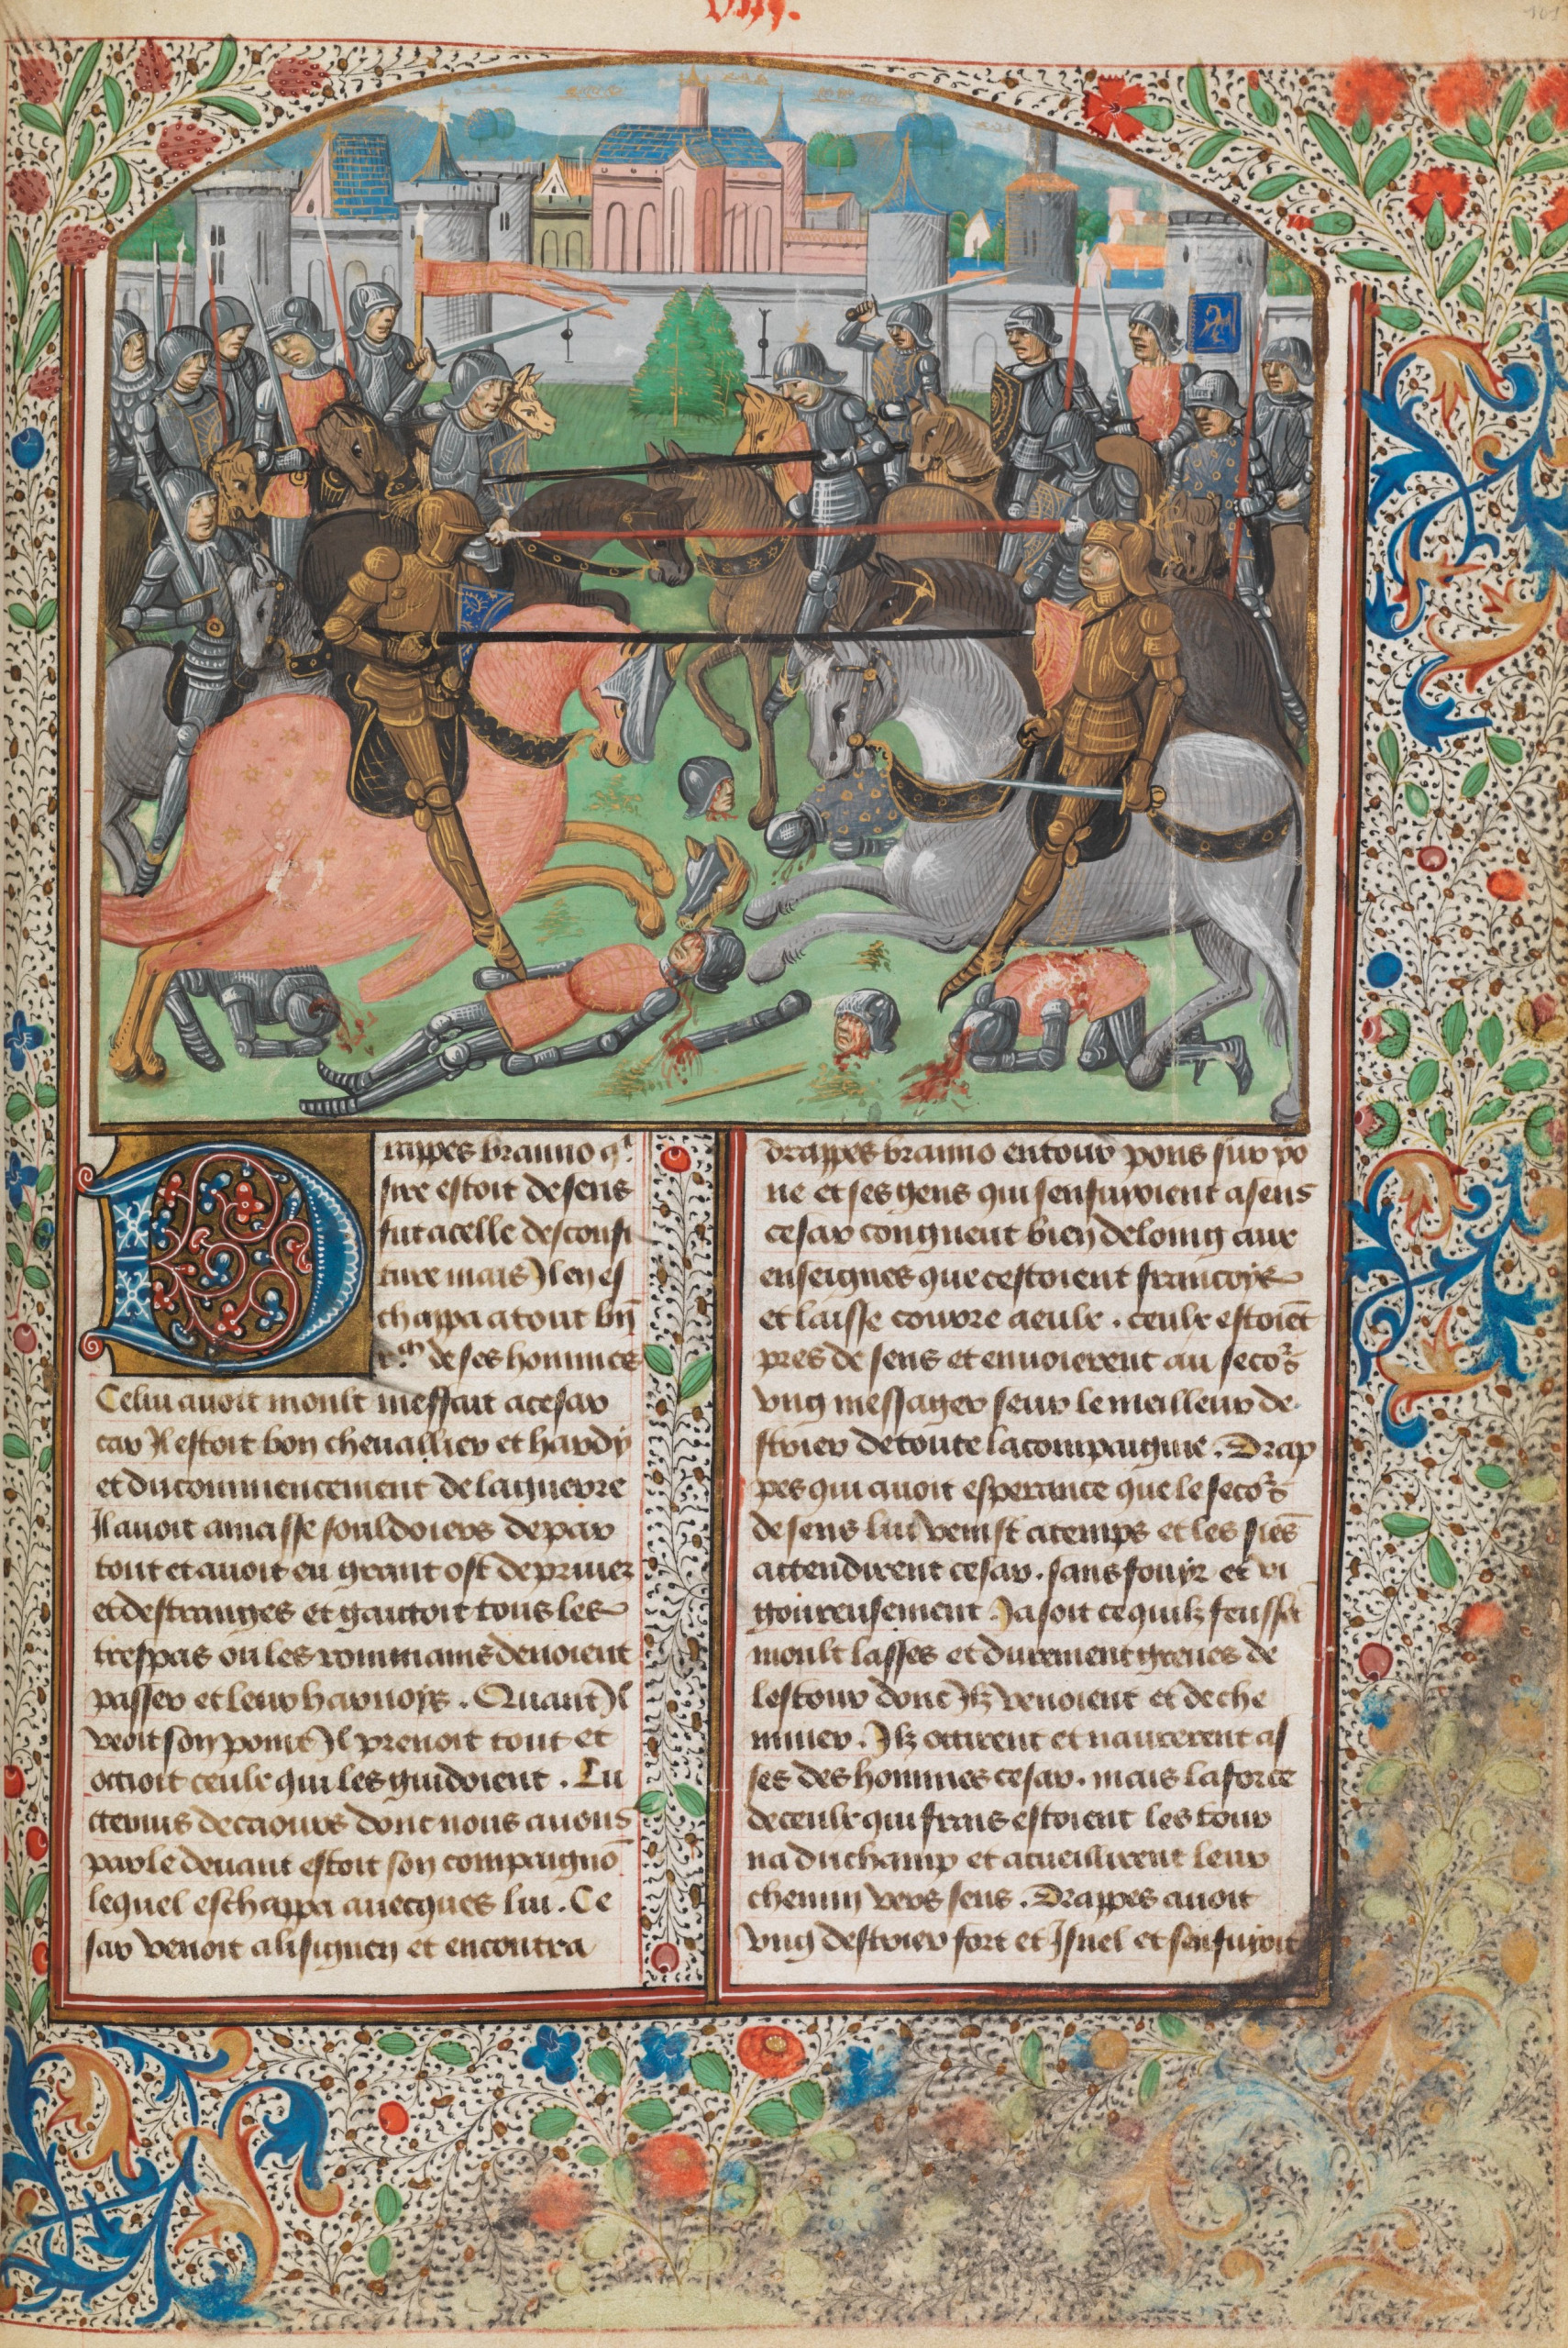 Viij.
161
Drappes branno qͥ
sire estoit de sens
fut a celle desconfi
ture mais Il en es
chappa a tout bn̄
de ses hommes
Celui auoit moult meffait a cesar
car Il estoit bon cheuallier et hardy
et du commencement de la guerre
Il auoit amasse souldoiers de par
tout et auoit eu grant ost de priuez
et destranges et gaitoit tous les
trespas ou les rommains deuoient
passer et leur harnoys. Quant Il
veoit son point Il prenoit tout et
occioit ceulx qui les guidoient. Lu
cterius de caours dont nous auons
parle deuant estoit son compaignō
lequel eschappa auecques lui. Ce
sar venoit a lisignen et encontra
drappes branno entour pons sur po
ne et ses gens qui sensuyoient a sens
cesar congneut bien de loing aux
enseignes que cestoient francoys
et laisse courre a eulx. ceulx estoiēt
pres de sens et enuoierent au seco᷒s
vng messager seur le meilleur de
strier de toute la compaignie. Drap
pes qui auoit esperance que le seco᷒s
de sens lui venist a temps et les siēs
attendirent cesar. sans fouyr et vi
goureusement Ja soit ce quilz feussēt
moult lasses et durement greues de
lestour dont Ilz venoient et de che
miner. Ilz occirent et naurerent as
ses des hommes cesar. mais la force
de ceulx qui frais estoient les tour
na du champ et acueillirent leur
chemin vers sens. Drappes auoit
vng destrier fort et Isnel et sensuyoit